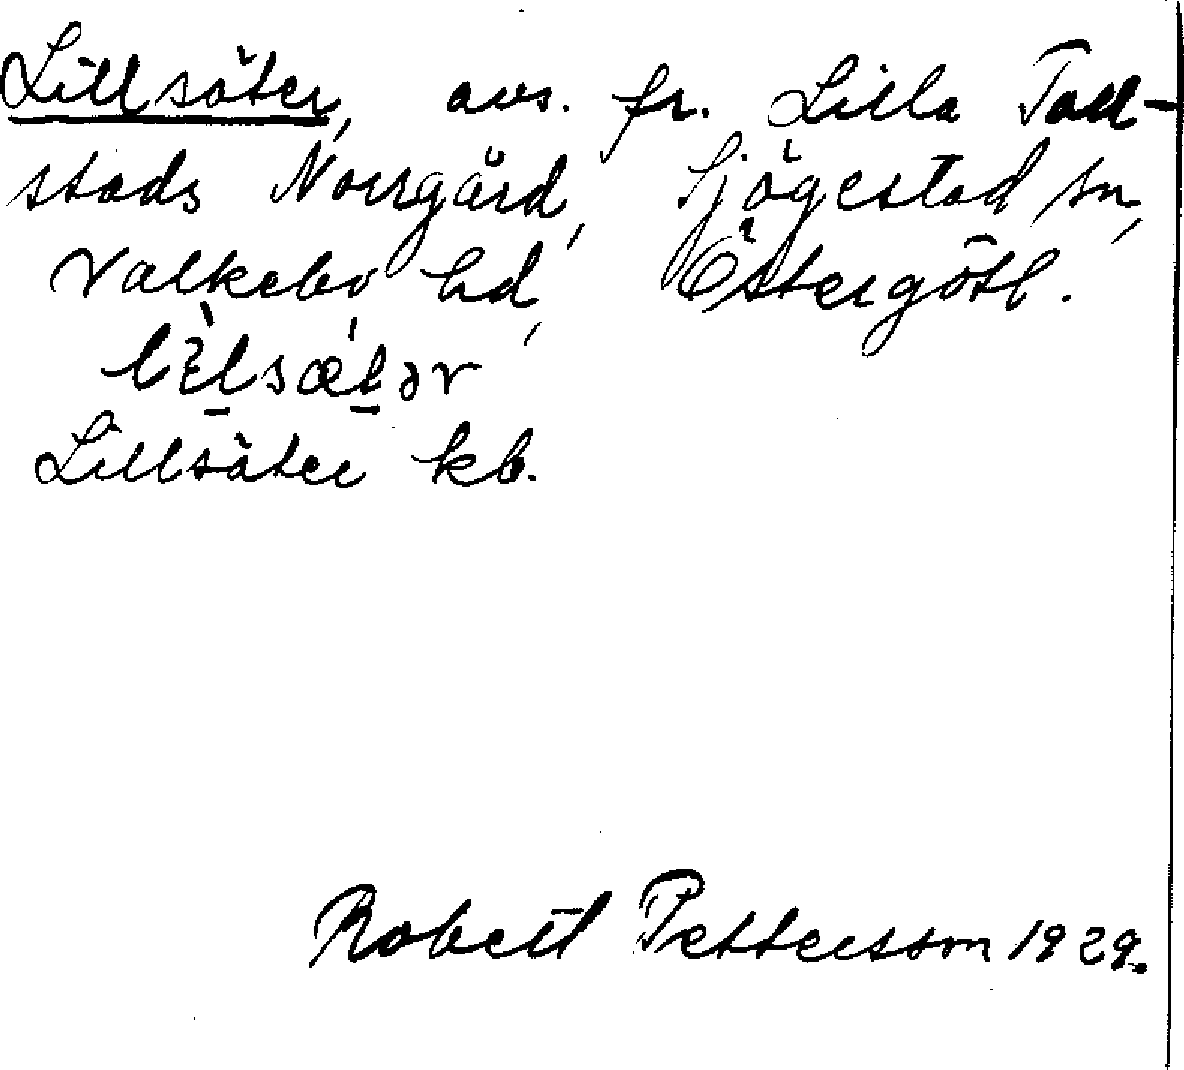 Lillsäter, avs. fr. Lilla Tall-
stads Norrgård, Sjögestad sn,
Valkebo hd, Östergötl.
Lillsäter kb.
Robert Pettersson 1929.